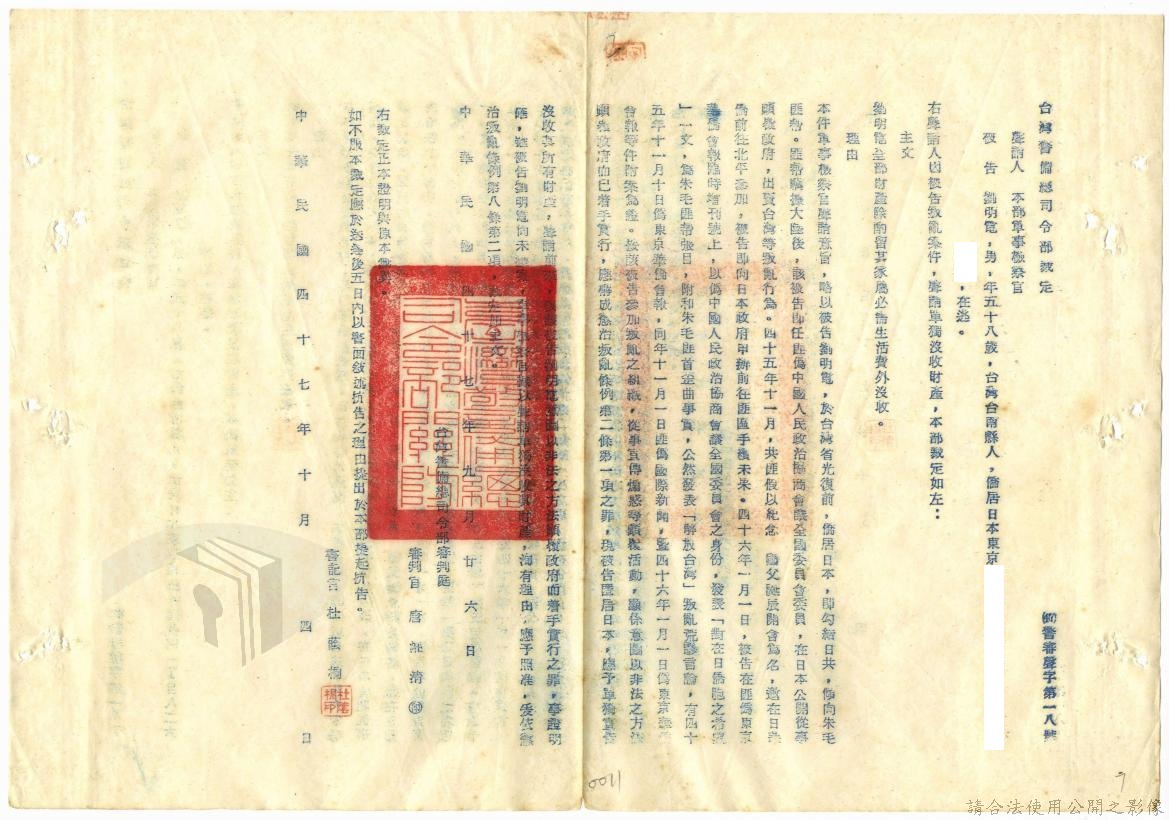 台灣警備總司令部裁定
㈣警審聲字第一八號
聲請人　本部軍事檢察官
被告　劉明電，男，年五十八歲，台灣台南縣人，僑居日本東京
，在逃。
右聲請人因被告叛亂案件，聲請單獨沒收財產，本部裁定如左：
主文
劉明電全部財產除酌留其家屬必需生活費外沒收。
理由
本件軍事檢察官聲請意旨，略以被告劉明電，於台灣省光復前，僑居日本，即勾結日共，傾向朱毛
匪幫。匪幫竊據大陸後，該被告即任匪偽中國人民政治協商會議全國委員會委員，在日本公開從事
顛覆政府，出賣台灣等叛亂行為。四十五年十一月，共匪假以紀念　國父誕辰開會為名，邀在日華
僑前往北平參加，被告即向日本政府申辦前往匪區手續未果。四十六年一月一日，被告在匪偽東京
華僑會報臨時增刊號上，以偽中國人民政治協商會議全國委員會之身份，發表「對在日僑胞之希望
」一文，為朱毛匪幫張目，附和朱毛匪首歪曲事實，公然發表「解放台灣」叛亂荒謬言論，有四十
五年十一月十日偽東京華僑會報，同年十一月一日匪偽國際新聞，暨四十六年一月一日偽東京華僑
會報等件附案為證。核該被告參加叛亂之組織，從事宣傳煽惑等顛覆活動，顯係意圖以非法之方法
顛覆政府而已著手實行，應構成懲治叛亂條例第二條第一項之罪，現被告匿居日本，應予單獨宣告
沒收其所有財產，聲請前
意圖以非法之方法顛覆政府而着手實行之罪，事證明
確，雖被告劉明電尚未
財產，洵有理由，應予照准，爰依懲
治叛亂條例第八條第二項，
主文。
中華民國四十七年九月廿六日
台灣警備總司令部審判庭
審判官　唐湘清
右裁定正本證明與原本無異。
如不服本裁定應於送達後五日內以書面敘述抗告之理由提出於本部提起抗告。
書記官　杜蔭楠
中華民國四十七年十月四日
0011
7
請合法使用公開之影像